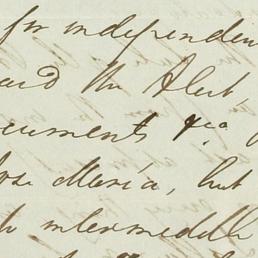 for independen
and the Alert,
cuments &ca
Jose Maria, but
to intermeddle